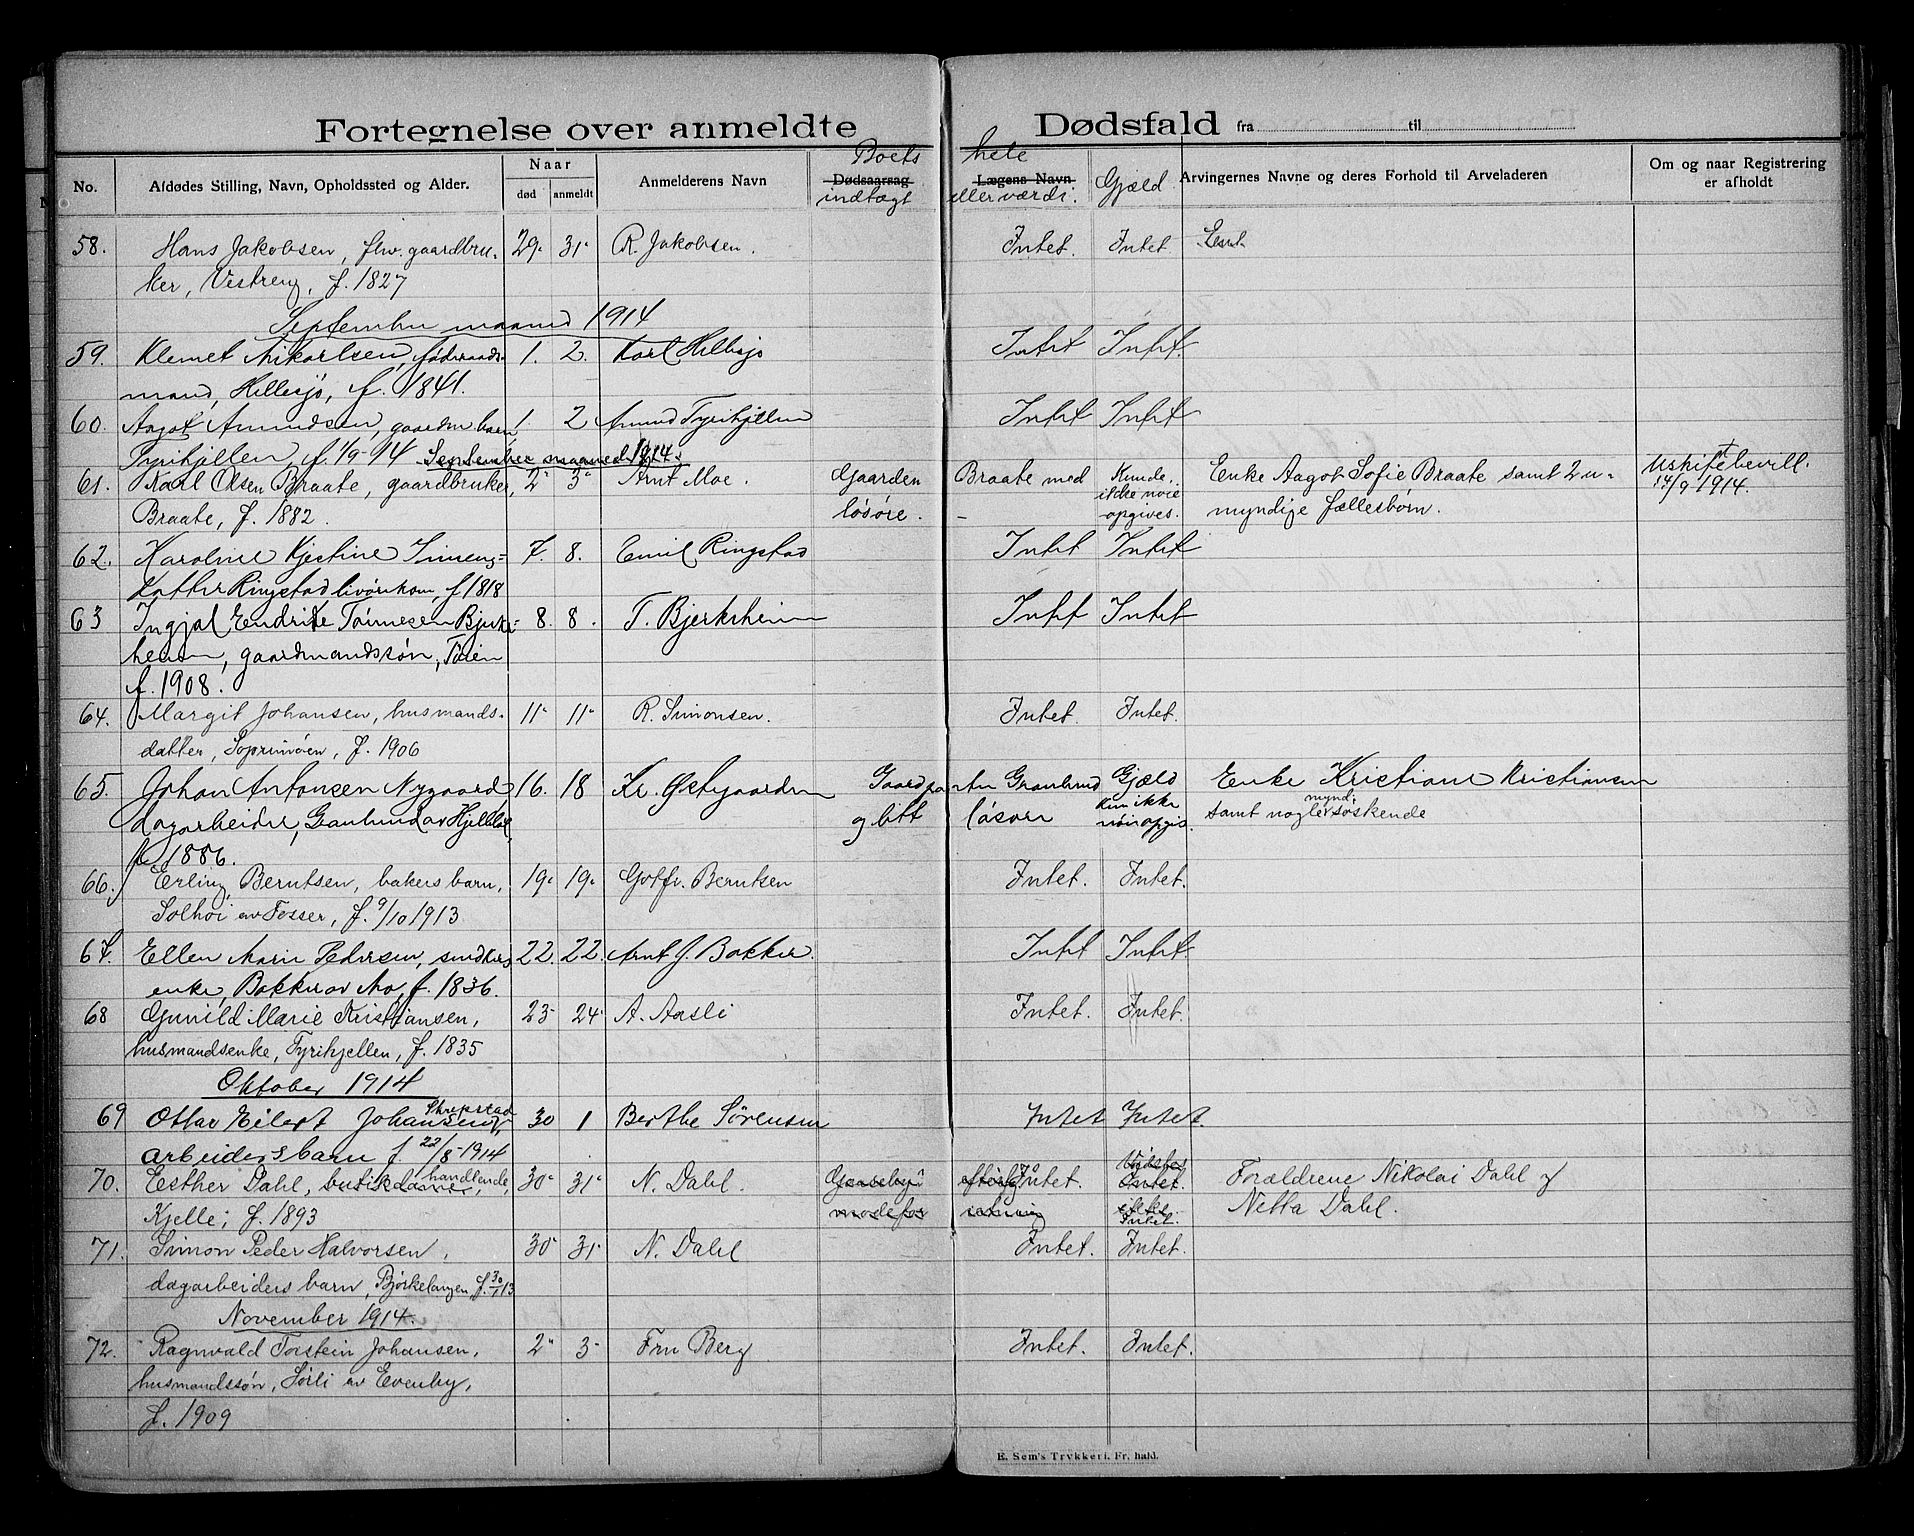 Fortegnelse over anmeldte Dødsfald fra til
No. Afdødes Stilling, Navn, Opholdssted og Alder. Naar død anmeldt Anmelderens Navn Dødsaarsag Lægens Navn Arvingernes Navne og deres Forhold til Arveladeren Om og naar Registrering er afholdt
Boets hele
indtægt eller værdi. Gjæld
58. Hans Jakobsen, fhv. gaardbru- 29 31 R. Jakobsen. Intet. Intet.
ker, Vestreng, f. 1827
September maaned 1914
59. Klemet Mikarlsen, føderaads- 1. 2. Karl Hellesjø Intet Intet.
mand, Hellesjø, f. 1841.
60. Aagot Amundsen, gaardm. barn, 1. 2 Amund Tyrihjellen Intet Intet
Tyrihjellen, f. 1/9-14 September maaned 1914.
61. Karl Olsen Braate, gaardbruker, 2 3 Arnt Moe. Gaarden Braate med Kunde Enke Aagot Sofie Braate samt 2 u- Uskiftebevill.
Braate, f. 1882. løsøre. ikke nøie opgives. myndige fællesbørn. 14/9 1914.
62. Karoline Kjestine Simens- 7. 8. Emil Ringstad Intet Intet
datter Ringstad livørekone, f 1818
63 Ingjal Endrike Tønnesen Bjerke- 8. 8. T. Bjerksheim Intet Intet
heim, gaardmandssøn, Toien
f. 1908.
64. Margit Johansen, husmands- 11 11 R. Simonsen. Intet. Intet.
datter, Soprimoen, f. 1906
65. Johan Antonsen Nygaard 16. 18 Kr. Østgaarden Gaardparten Granlund Gjæld Enke Kristiane Kristiansen
dagarbeider, Granlund av Hjellebøl, og litt løsøre kun ikke nøie opgis. samt nogle mynd. søskende
f. 1886.
66. Erling Berntsen, bakers barn, 19 19 Gotfr. Berntsen Intet. Intet.
Solhøi av Fosser, f. 9/10 1913
67. Ellen Marie Pedersen, smedkers 22. 22. Arnt J. Bakker. Intet Intet
enke, Bakker av Mo, f. 1836.
68 Gunild Marie Kristiansen, 23 24 A. Aasli Intet. Intet.
husmandsenke, Tyrihjellen, f. 1835
Oktober 1914
69 Ottar Eilert Johansen, Skrepstad 30 1 Berthe Sørensen Intet Intet.
arbeidersbarn f. 22/8-1914
70. Esther Dahl, butikdame, handlende, 30 31 N. Dahl. Intet. Intet. Forældrene Nikolai Dahl og
Kjelle, f. 1893 Netta Dahl.
71. Simon Peder Halvorsen, 30 31 N. Dahl Intet. Intet.
dagarbeiders barn, Bjørkelangen, f. 30/1 13
November 1914.
72. Ragnvald Torstein Johansen, 2 3 Fru Berg Intet. Intet.
husmandssøn, Sørli av Evenby,
f. 1909
E. Sem's Trykkeri. Fr. hald.